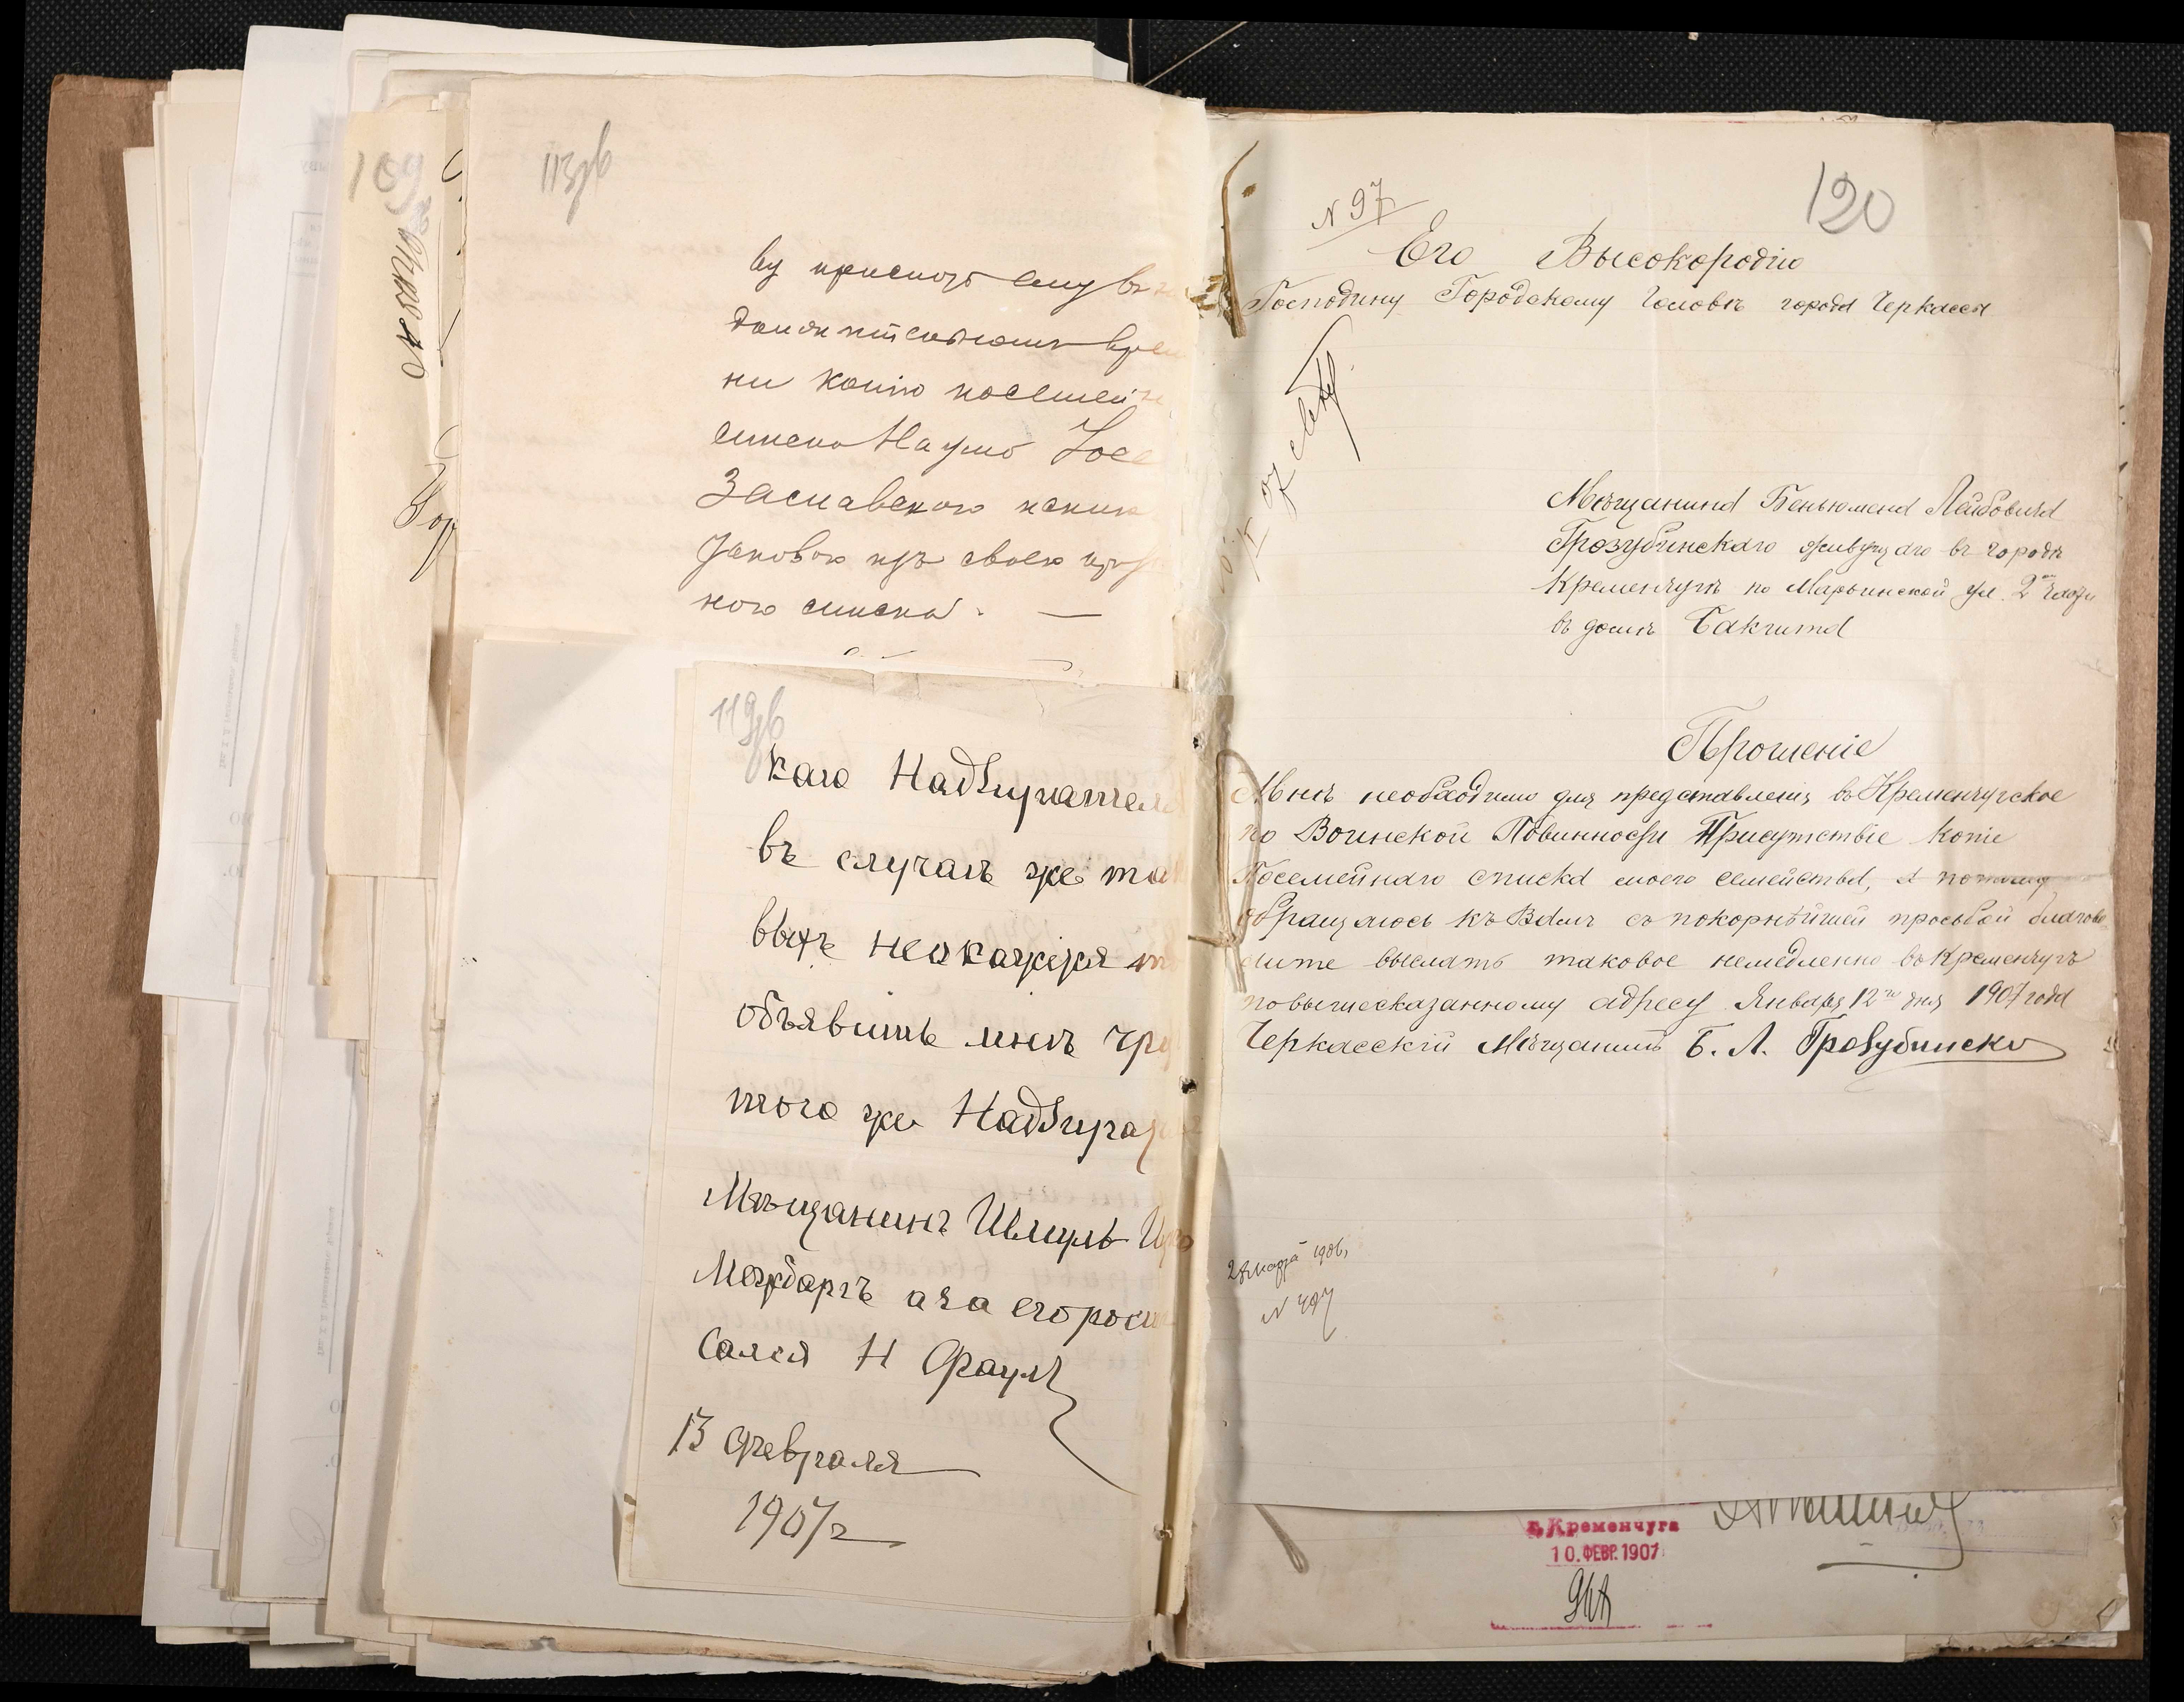 113об
ву прислать ему въ
ни копію посемей
списка Наума Іос
Заславского
ного списка.
109
119об
каго Надзирателя
въ случаѣ же та
выхъ неокажіця то
объявить мнѣ чре
того же Надзира
Мѣщанинъ Шмуль
Межбаръ а за его роспи
сался Н Фаулъ
13 февраля
1907 г
120
N 97
Его Высокородію
Господину Городскому Головѣ города Черкассы
Мѣщанина Беньюмена Лейбовича
Грозубинскаго живущаго въ городѣ
Кременчугѣ по Марьинской ул. 2ой части
въ домѣ Бакгита
Прошеніе
Мнѣ необходимо для представленія въ Кременчугское
по Воинской Повинности Присутствіе копіе
Посемейнаго списка моего семейства, а потому
обращаюсь къ Вамъ съ покорнѣйшей просьбой благово
лите выслать таковое немедленно въ Кременчугъ
по вышесказанному адресу Января 12го дня 1907 года
Черкасскій Мѣщанинъ Б. Л. Грозубински
28 марта 1906,
N
г. Кременчуга
10. ФЕВР. 1907